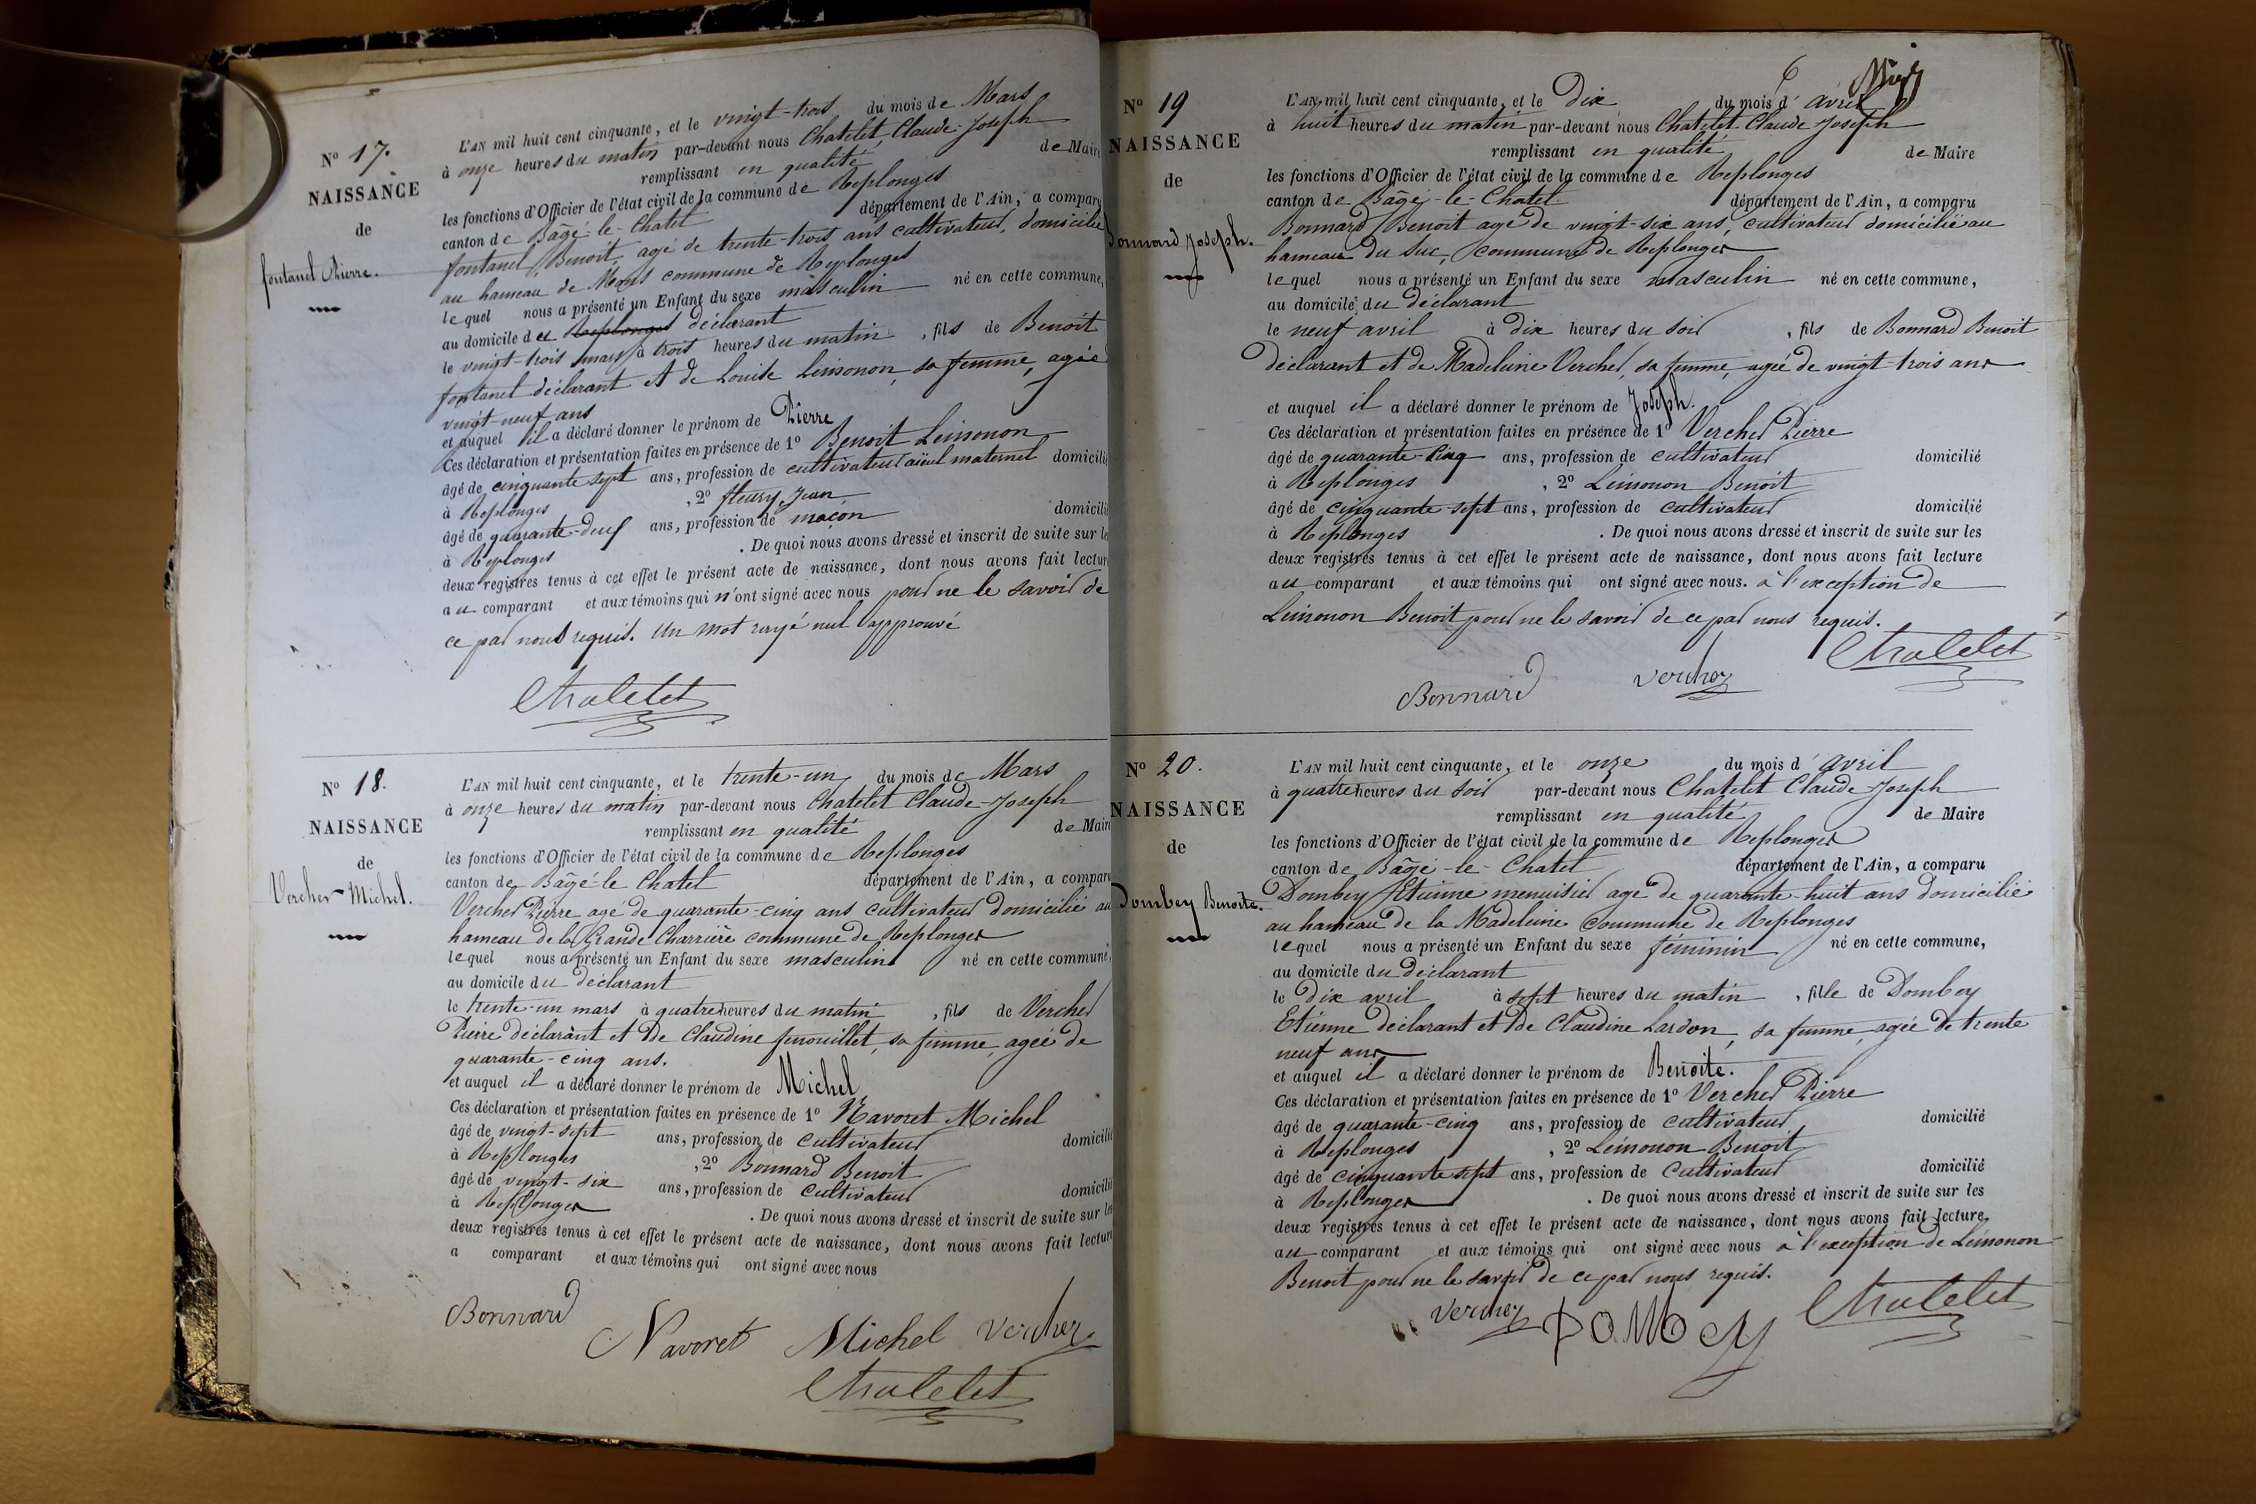 N° 17.
NAISSANCE
de
fontanel Pierre.
L'AN mil huit cent cinquante, et le vingt-trois du mois de Mars
à onze heures du matin par-devant nous Chatelet Claude-Joseph
remplissant en qualité de Maire
les fonctions d'Officier de l'état civil de la commune de Replonges
canton de Bâgé-le-Chatel département de l'Ain, a comparu
fontanel Benoit, agé de trente-trois ans cultivateur, domicilié
au hameau de Mons commune de Replonges
lequel nous a présenté un Enfant du sexe masculin né en cette commune,
au domicile du Replonges déclarant
le vingt-trois mars à trois heures du matin, fils de Benoit
fontanel déclarant et de Louise Limonon, sa femme, agée
vingt-neuf ans
et auquel il a déclaré donner le prénom de Pierre
Ces déclaration et présentation faites en présence de 1° Benoit Limonon
âgé de cinquante sept ans, profession de cultivateur aïeul maternel domicilié
à Replonges, 2° fleury Jean
âgé de quarante-deux ans, profession de maçon domicilié
à Replonges. De quoi nous avons dressé et inscrit de suite sur les
deux registres tenus à cet effet le présent acte de naissance, dont nous avons fait lecture
au comparant et aux témoins qui n'ont signé avec nous pour ne le savoir de
ce par nous requis. Un mot rayé nul approuvé
Chatelet
N° 18.
NAISSANCE
de
Vercher Michel.
L'AN mil huit cent cinquante, et le trente-un du mois de Mars
à onze heures du matin par-devant nous Chatelet Claude-Joseph
remplissant en qualité de Maire
les fonctions d'Officier de l'état civil de la commune de Replonges
canton de Bâgé-le Chatel département de l'Ain, a comparu
Vercher Pierre agé de quarante-cinq ans cultivateur domicilié au
hameau de la Grande Charrière commune de Replonges
lequel nous a présenté un Enfant du sexe masculin né en cette commune,
au domicile du déclarant
le trente-un mars à quatre heures du matin, fils de Vercher
Pierre déclarant et de Claudine fenouillet, sa femme, agée de
quarante-cinq ans.
et auquel il a déclaré donner le prénom de Michel
Ces déclaration et présentation faites en présence de 1° Navoret Michel
âgé de vingt-sept ans, profession de cultivateur domicilié
à Replonges, 2° Bonnard Benoit
âgé de vingt-six ans, profession de cultivateur domicilié
à Replonges. De quoi nous avons dressé et inscrit de suite sur les
deux registres tenus à cet effet le présent acte de naissance, dont nous avons fait lecture
a comparant et aux témoins qui ont signé avec nous
Bonnard
Navoret Michel Vercher
Chatelet
6
N° 19
NAISSANCE
de
Bonnard Joseph.
L'AN mil huit cent cinquante, et le Dix du mois d'avril
à huit heures du matin par-devant nous Chatelet Claude Joseph
remplissant en qualité de Maire
les fonctions d'Officier de l'état civil de la commune de Replonges
canton de Bâgé-le-Chatel département de l'Ain, a comparu
Bonnard Benoit agé de vingt-six ans, cultivateur domicilié au
hameau du Suc, commune de Replonges
lequel nous a présenté un Enfant du sexe masculin né en cette commune,
au domicile du déclarant
le neuf avril à dix heures du soir, fils de Bonnard Benoit
déclarant et de Madeleine Vercher, sa femme, agée de vingt-trois ans
et auquel il a déclaré donner le prénom de Joseph.
Ces déclaration et présentation faites en présence de 1° Vercher Pierre
âgé de quarante-cinq ans, profession de cultivateur domicilié
à Replonges, 2° Limonon Benoit
âgé de cinquante-sept ans, profession de cultivateur domicilié
à Replonges. De quoi nous avons dressé et inscrit de suite sur les
deux registres tenus à cet effet le présent acte de naissance, dont nous avons fait lecture
au comparant et aux témoins qui ont signé avec nous. à l'exception de
Limonon Benoit pour ne le savoir de ce par nous requis.
Chatelet
Bonnard Vercher
N° 20.
NAISSANCE
de
Dombey Benoite.
L'AN mil huit cent cinquante, et le onze du mois d'avril
à quatre heures du soir par-devant nous Chatelet Claude-Joseph
remplissant en qualité de Maire
les fonctions d'Officier de l'état civil de la commune de Replonges
canton de Bâgé-le-Chatel département de l'Ain, a comparu
Dombey Etienne menuisier agé de quarante-huit ans domicilié
au hameau de la Madeleine commune de Replonges
lequel nous a présenté un Enfant du sexe féminin né en cette commune,
au domicile du déclarant
le dix avril à sept heures du matin, fille de Dombey
Etienne déclarant et de Claudine Lardon, sa femme, agée de trente
neuf ans
et auquel il a déclaré donner le prénom de Benoite.
Ces déclaration et présentation faites en présence de 1° Vercher Pierre
âgé de quarante-cinq ans, profession de cultivateur domicilié
à Replonges, 2° Limonon Benoit
âgé de cinquante sept ans, profession de cultivateur domicilié
à Replonges. De quoi nous avons dressé et inscrit de suite sur les
deux registres tenus à cet effet le présent acte de naissance, dont nous avons fait lecture
au comparant et aux témoins qui ont signé avec nous à l'exception de Limonon
Benoit pour ne le savoir de ce par nous requis.
Vercher DOMBEY Chatelet